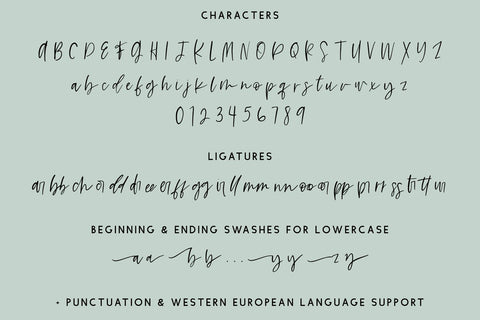 CHARACTERS
A B C D E F G H I J K L M N O P Q R S T U V W X Y Z
a b c d e f g h i j k l m n o p q r s t u v w x y z
0 1 2 3 4 5 6 7 8 9
LIGATURES
ar bb ch cr dd dr ee er ff gg ir ll mm nn oo or pp pr rr ss tr tt ur
BEGINNING & ENDING SWASHES FOR LOWERCASE
a a b b . . . y y z z
+ PUNCTUATION & WESTERN EUROPEAN LANGUAGE SUPPORT